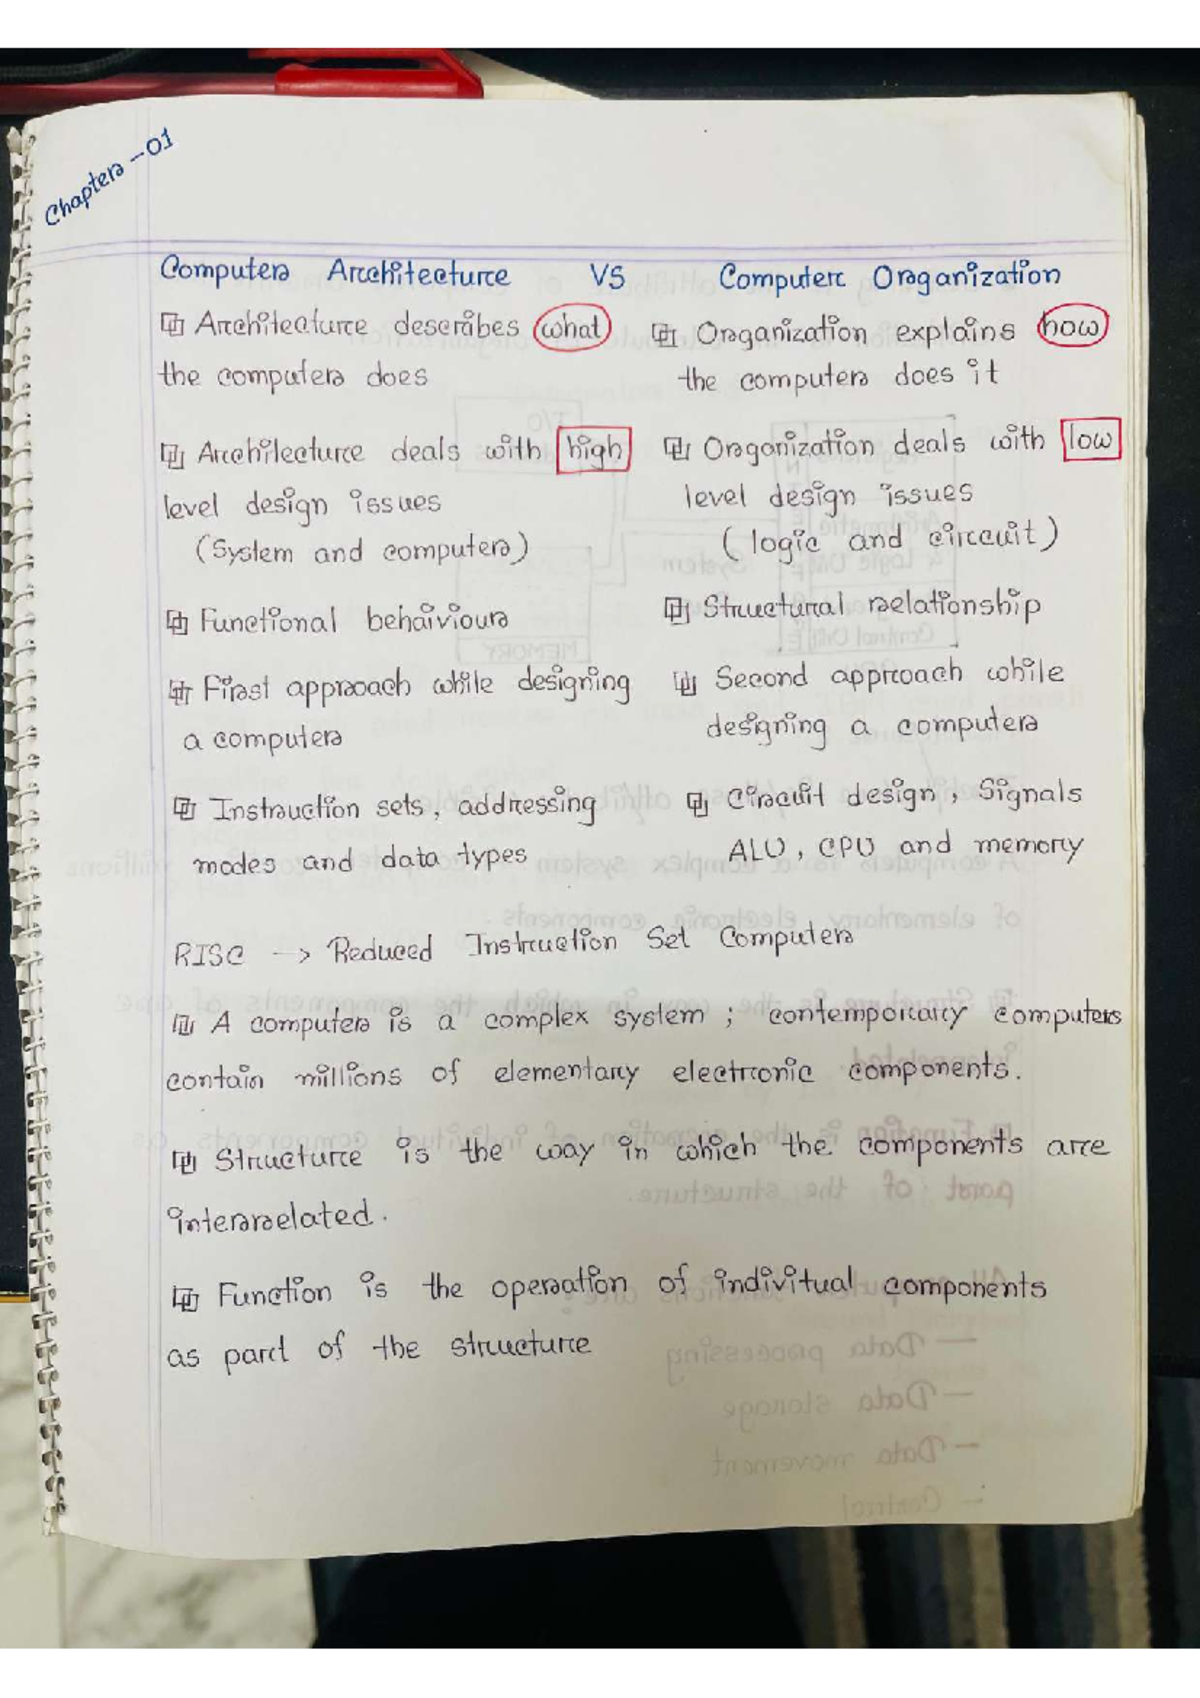 Chapter - 01
Computer Architecture VS Computer Organization
Architecture describes what
the computer does
Organization explains how
the computer does it
Architecture deals with high
level design issues
(System and computer)
Organization deals with low
level design issues
(logic and circuit)
Functional behaiviour
Structural relationship
First approach while designing
a computer
Second approach while
designing a computer
Instruction sets, addressing
modes and data types
Circuit design, Signals
ALU, CPU and memory
RISC --> Reduced Instruction Set Computer
A computer is a complex system ; contemporary computers
contain millions of elementary electronic components.
Structure is the way in which the components are
interrelated.
Function is the operation of indivitual components
as part of the structure